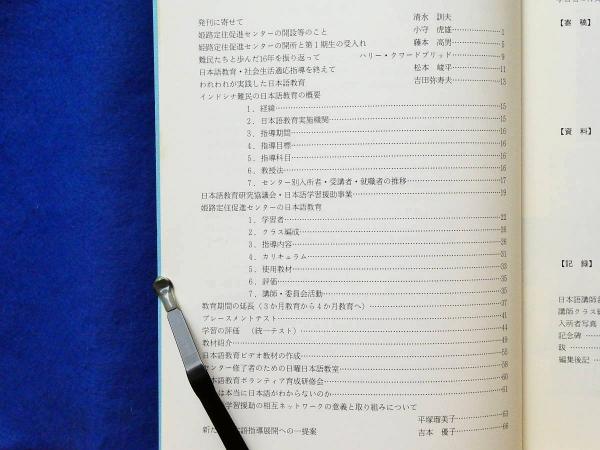 発刊に寄せて 清水 訓夫
姫路定住促進センターの開設等のこと 小守 虎雄 1
姫路定住促進センターの開所と第1期生の受入れ 藤本 高男 5
難民たちと歩んだ16年を振り返って ハリー・クワードブリッド 9
日本語教育・社会生活適応指導を終えて 松本 峻平 11
われわれが実践した日本語教育 吉田弥寿夫 13
インドシナ難民の日本語教育の概要
1. 経緯 15
2. 日本語教育実施機関 15
3. 指導期間 16
4. 指導目標 16
5. 指導科目 16
6. 教授法 16
7. センター別入所者・受講者・就職者の推移 17
日本語教育研究協議会・日本語学習援助事業 19
姫路定住促進センターの日本語教育
1. 学習者 22
2. クラス編成 26
3. 指導内容 26
4. カリキュラム 31
5. 使用教材 33
6. 評価 35
7. 講師・委員会活動 35
教育期間の延長(3か月教育から4か月教育へ) 37
プレースメントテスト 41
学習の評価 (統一テスト) 44
教材紹介 49
日本語教育ビデオ教材の作成 55
センター修了者のための日曜日本語教室 58
日本語教育ボランティア育成研修会 60
は本当に日本語がわからないのか 61
学習援助の相互ネットワークの意義と取り組みについて
平塚瑠美子 63
新た 語指導展開への一提案 吉本 優子 66
【寄 稿】
【資 料】
【記 録】
日本語講師
講師クラス
入所者写真
記念碑
跋
編集後記